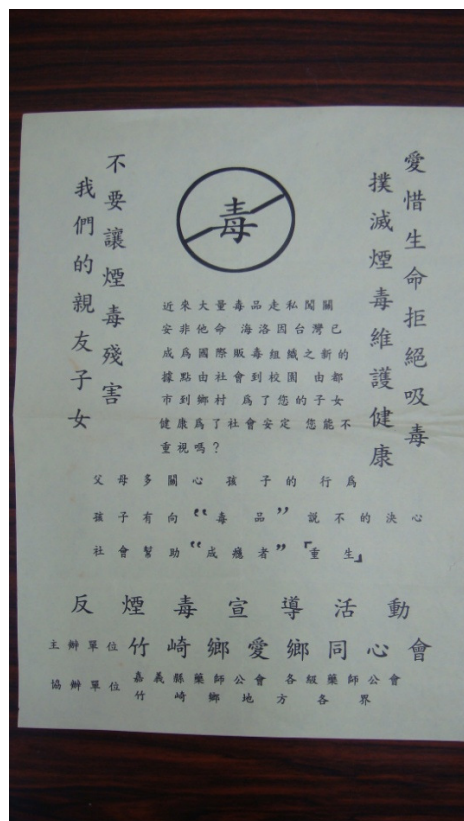 愛惜生命拒絕吸毒
撲滅煙毒維護健康
毒
不要讓煙毒殘害
我們的親友子女
近來大量毒品走私闖關
安非他命 海洛因台灣已
成為國際販毒組織之新的
據點由社會到校園 由都
市到鄉村 為了您的子女
健康為了社會安定 您能不
重視嗎?
父母多關心孩子的行為
孩子有向“毒品”說不的決心
社會幫助“成癮者”『重生』
反煙毒宣導活動
主辦單位 竹崎鄉愛鄉同心會
協辦單位 嘉義縣藥師公會 各級藥師公會
竹崎鄉地方各界